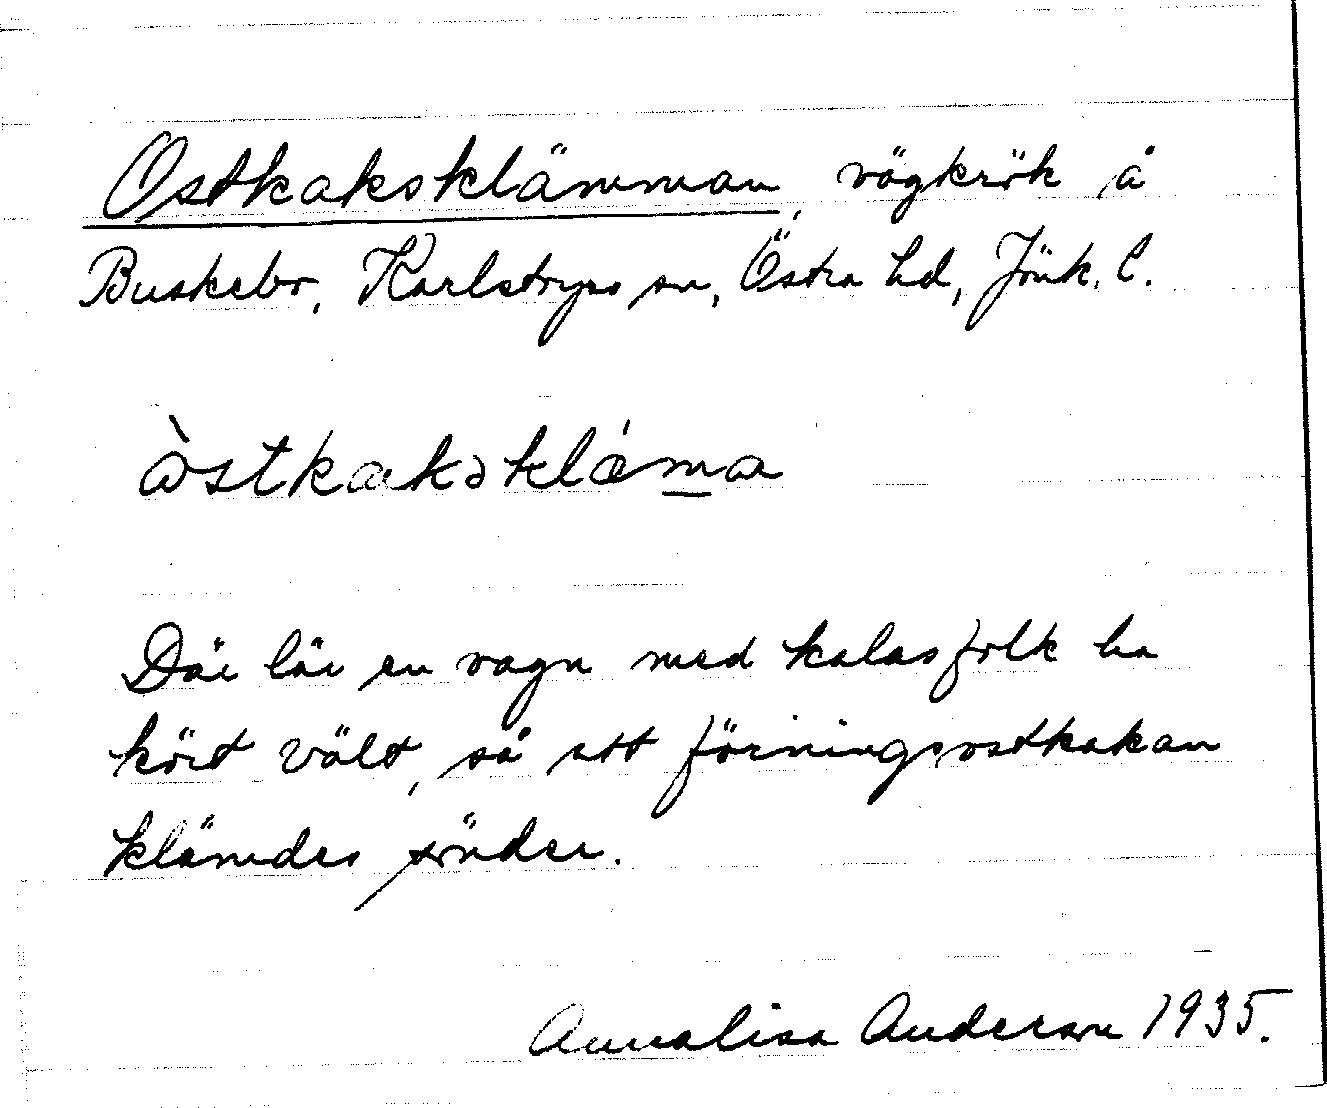 Ostkaksklämman, vägkrök å
Buskebo, Karlstorps sn, Östra hd, Jönk. l.
òstkakskláma
Där lär en vagn med kalasfolk ha
kört vält, så att förningsostkakan
klämdes sönder.
Annalisa Anderson 1935.